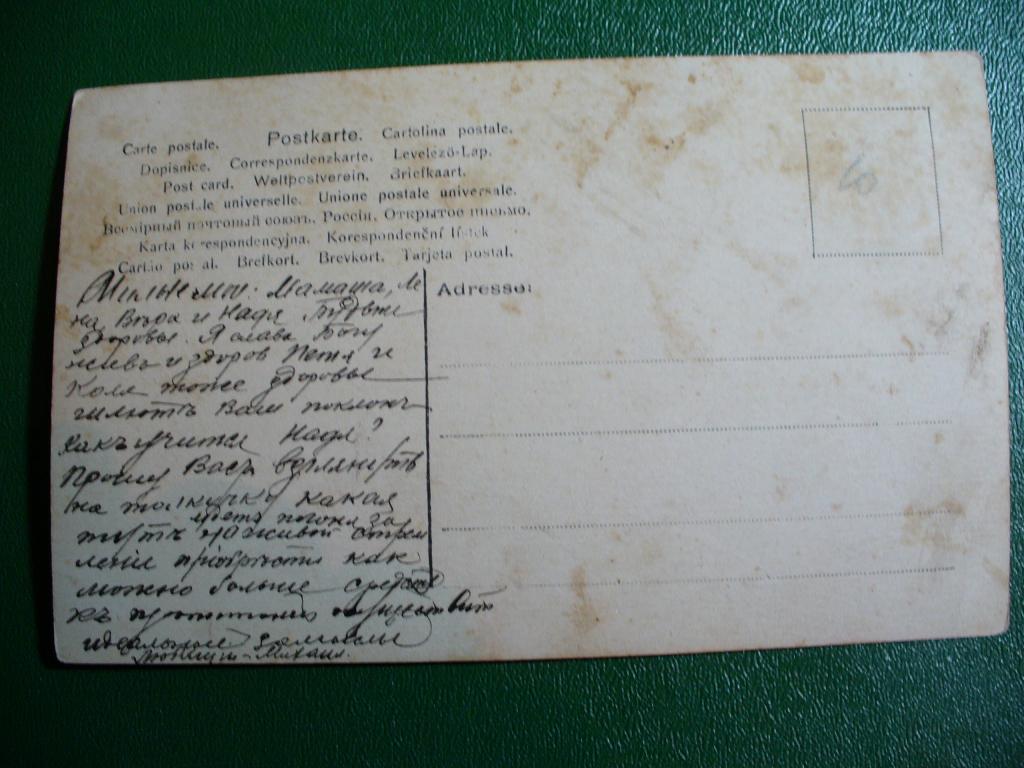 Carte postale. Postkarte. Cartolina postale.
Dopisnice. Correspondenzkarte. Levelező-Lap.
Post card. Weltpostverein. Briefkaart.
Union postale universelle. Unione postale universale.
Всемірный почтовый союзъ. Россія. Открытое письмо.
Karta korespondencyjna. Korespondenční lístek
Cartão postal. Brefkort. Brevkort. Tarjeta postal.
Adresse:
Милые мои: Мамаша, Ле
на, Вѣра и Надя Будьте
здоровы. Я слава Богу
живъ и здоров Петя и
Коля тоже здоровы
шлютъ Вам поклонъ
Какъ учится Надя?
Прошу Васъ взглянуть
на какая
идетъ погоня за
тутъ наживой стрем
ление приобрести как
можно больше средств
къ осуществить
идеальные замыслы
Любящий - Михаил.